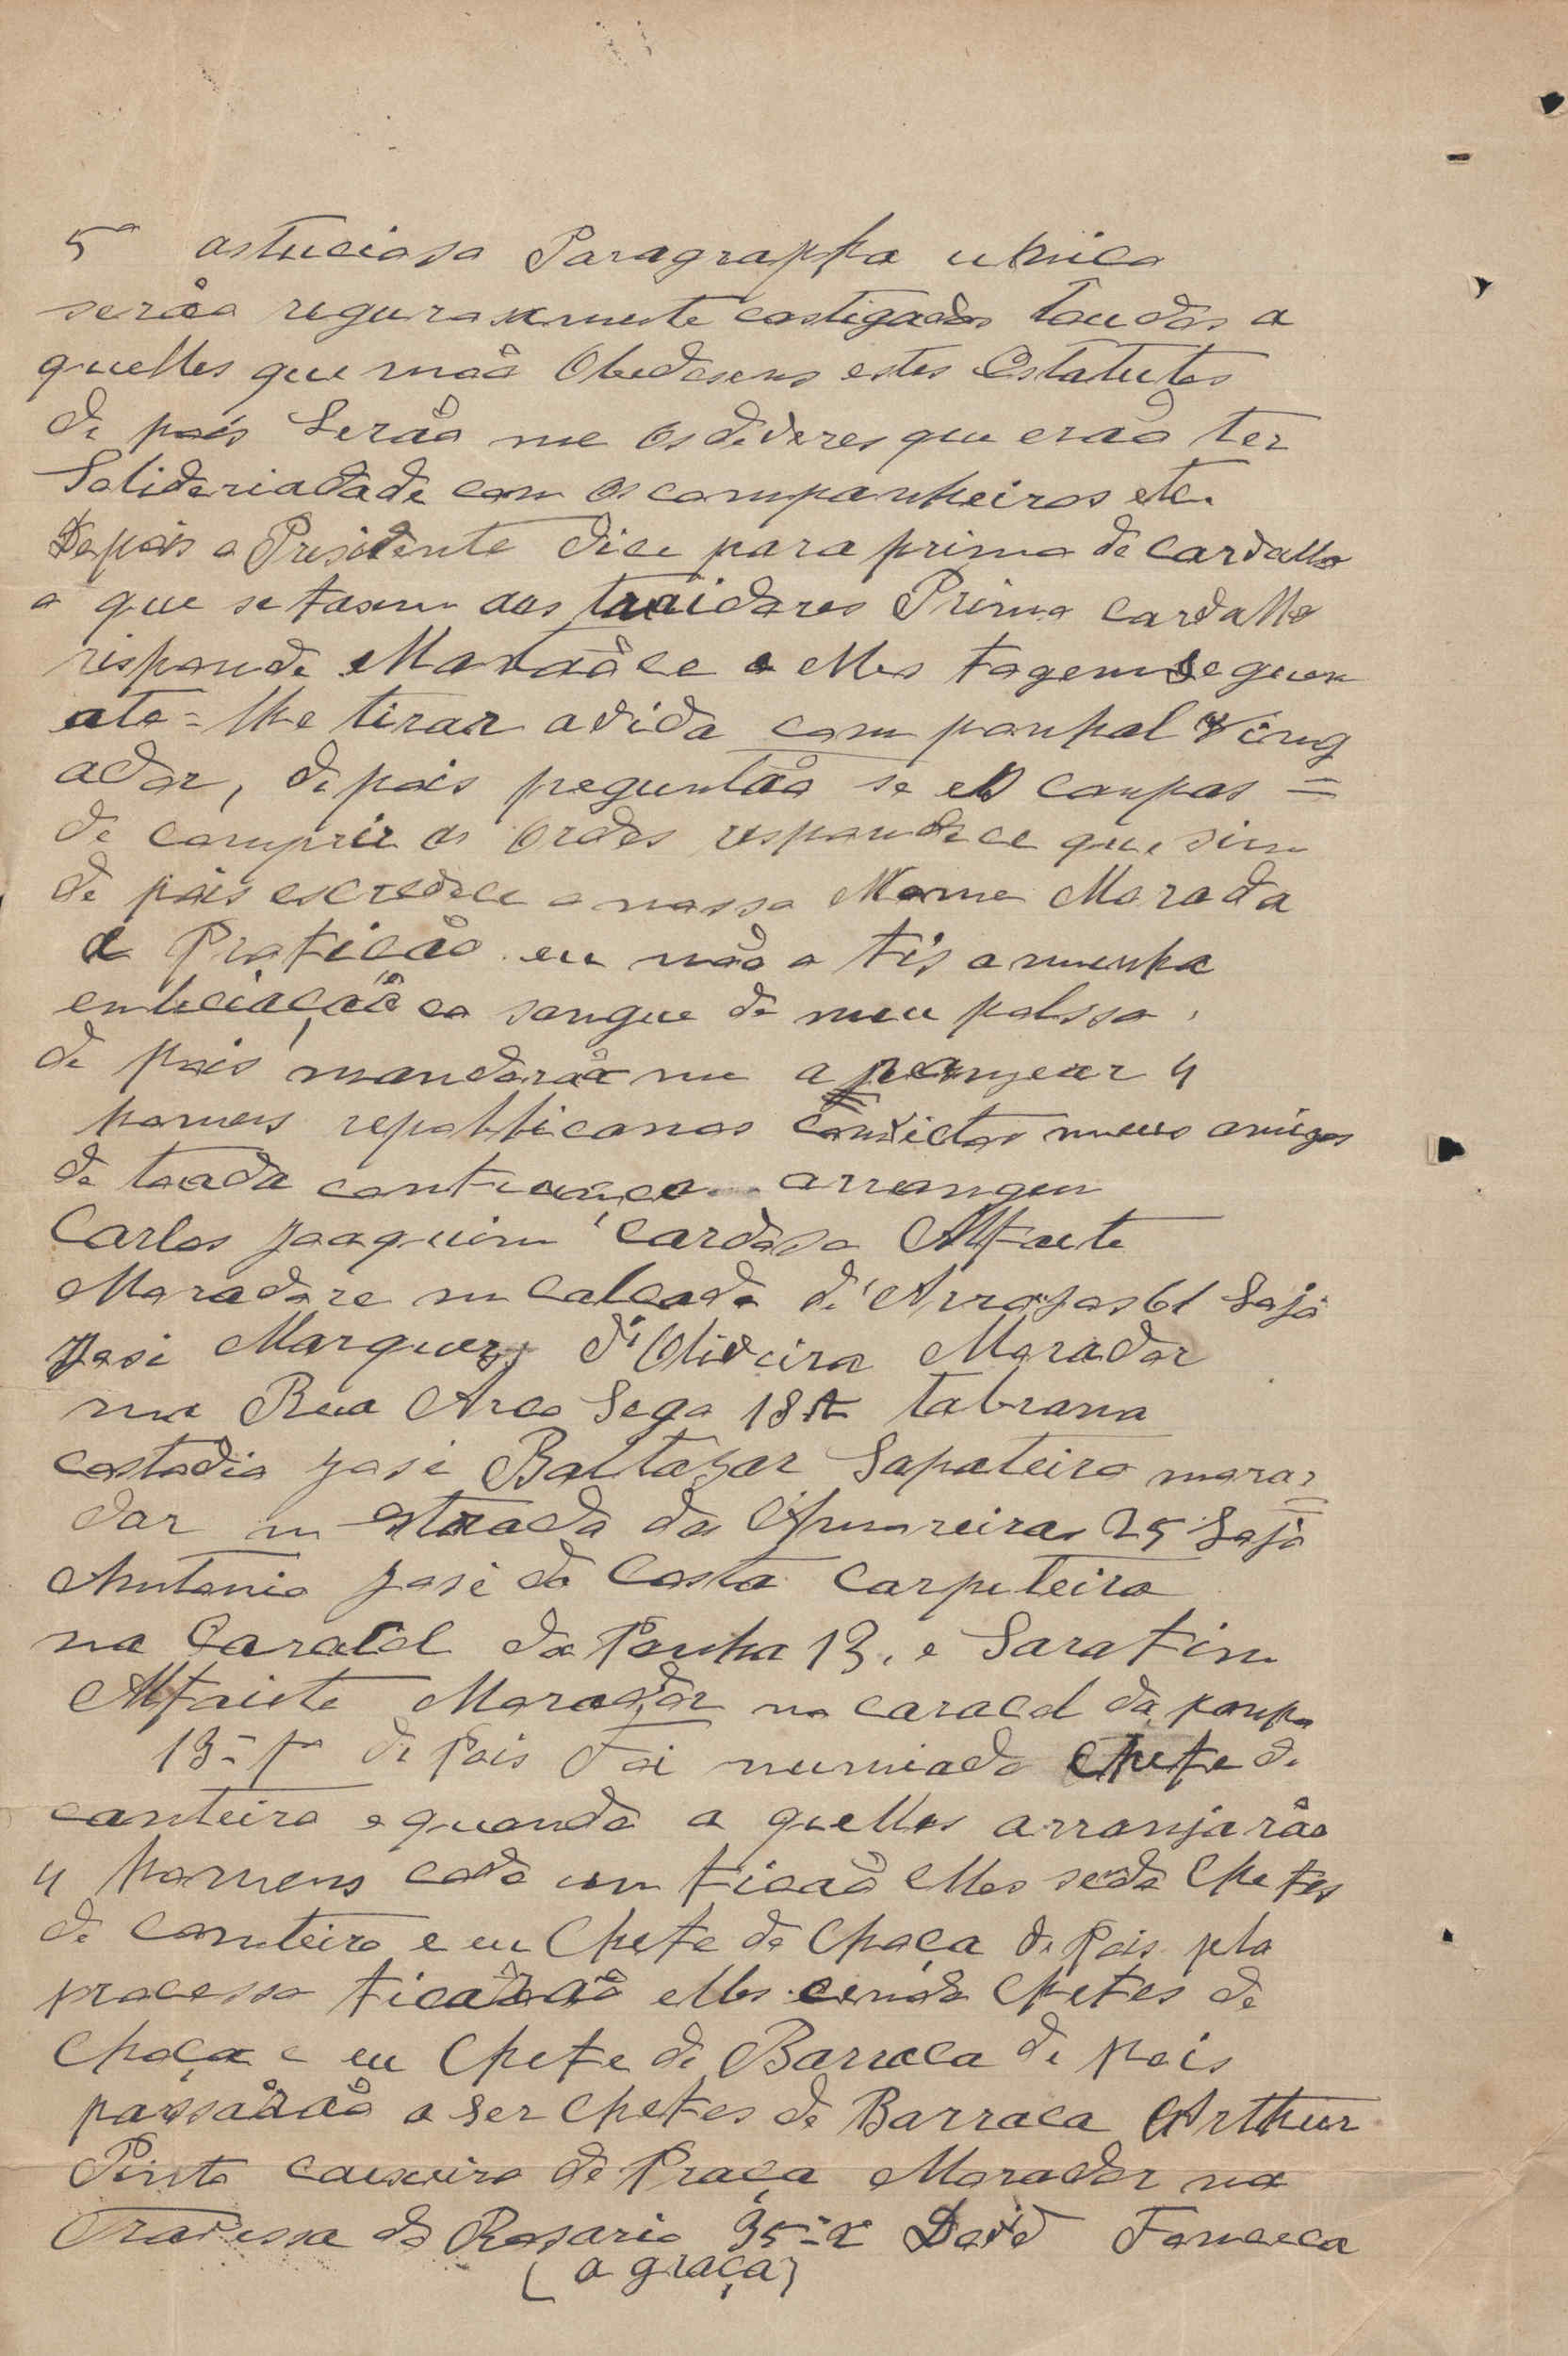 5ª astuciosa Paragrapho uhnico
serão regurosamente castigados toudos a
quelles que não Obedesem estes Estatutos
de pois Serão me os deveres que erão ter
Solideriadade com os companheiros etc.
Depois o Presidente dice para primo de carvalho
o que se fasem aos traidores Primo carvalho
respoude Matãoce e elles fogem segem
ate-lhe tirar a vida com ponhal Ving
ador, de pois preguntão se es canpas =
de comprir as Ordes respoudece que sim
de pois escrevece o nosso Nome Morada
e Profição eu não o fis a minha
enheciação co sangue de meu polsso.
de pois mandarão me a rranjear 4
homens repobblicanos convictos meus amigos
de toada confiança arrangeu
Carlos Joaquim Cardoso Alfaete
Moradore na calcada d'Arrojos 61 Loja
José Marques d'Oliveira Morador
na Rua Arco Sego 18 A tabrana
costodio José Baltazar Sapateiro morar
dor na estrada das Amoreiras 25 Loja
Antonio José da Costa Carpeteiro
na Caracol da Penha 13. e Sarafim
Alfaiete Morador no caracol da penha
13-1º de pois foi numiado chefe de
canteiro e quando a quelles arranjarão
4 homens cada um ficão elles sendo chefes
de canteiro e eu Chefe de Choça de pois pelo
processo ficarão elles cendo chefes de
Choça e eu Chefe de Barraca de pois
passarão a ser chefes de Barraca Arthur
Pinto caixeiro de Praça Morador na
Travessa do Rosario 35-2º David Fonceca
(a graça)